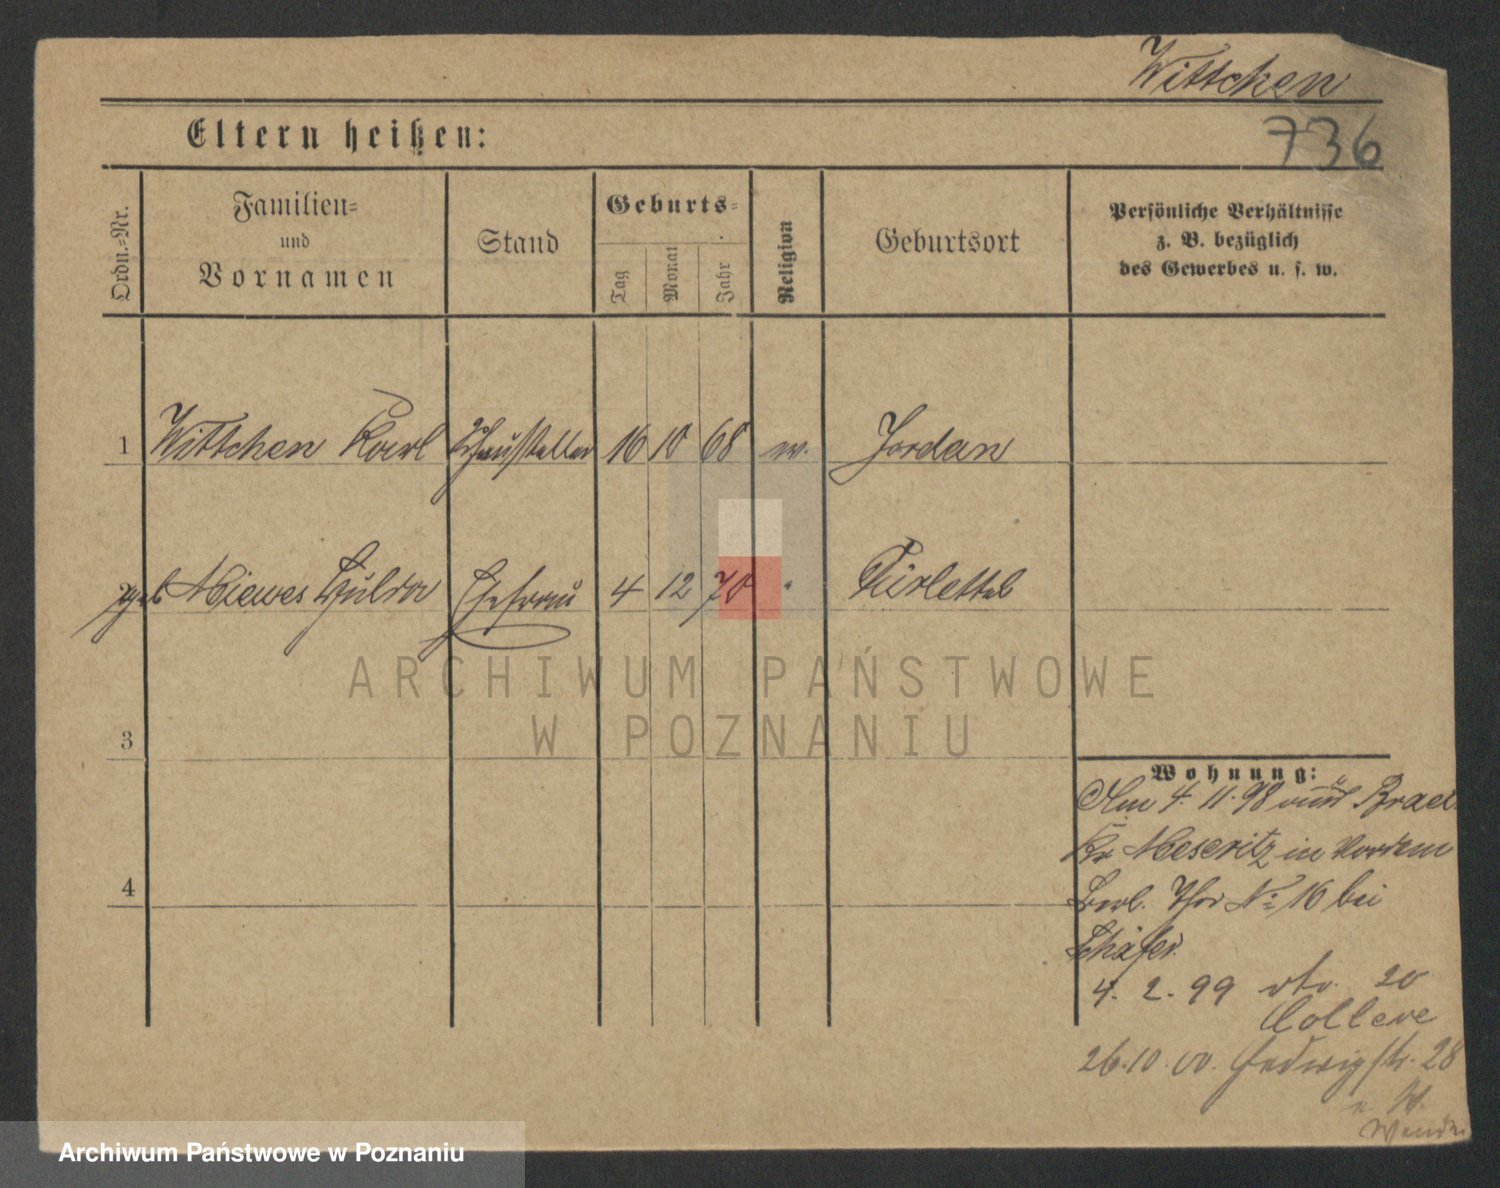 Wittchen
Eltern heißen:
736
Ordn.=Nr.
Familien=
und
Vornamen
Stand
Geburts=
Tag
Monat
Jahr
Religion
Geburtsort
Persönliche Verhältnisse
z. B. bezüglich
des Gewerbes u. s. w.
1 Wittchen Karl 16 10 68 ev. Jordan
2 geb Miewes Hulda Ehefrau 4 12 70 "
ARCHIWUM PAŃSTWOWE
W POZNANIU
3
Wohnung:
Am 4. 11. 98 aus
Kr Meseritz in
4
Berl. Thor No 16 bei
Schäfer.
4. 2. 99 dto. 20
26.10.00. Hedwigstr. 28
Archiwum Państwowe w Poznaniu